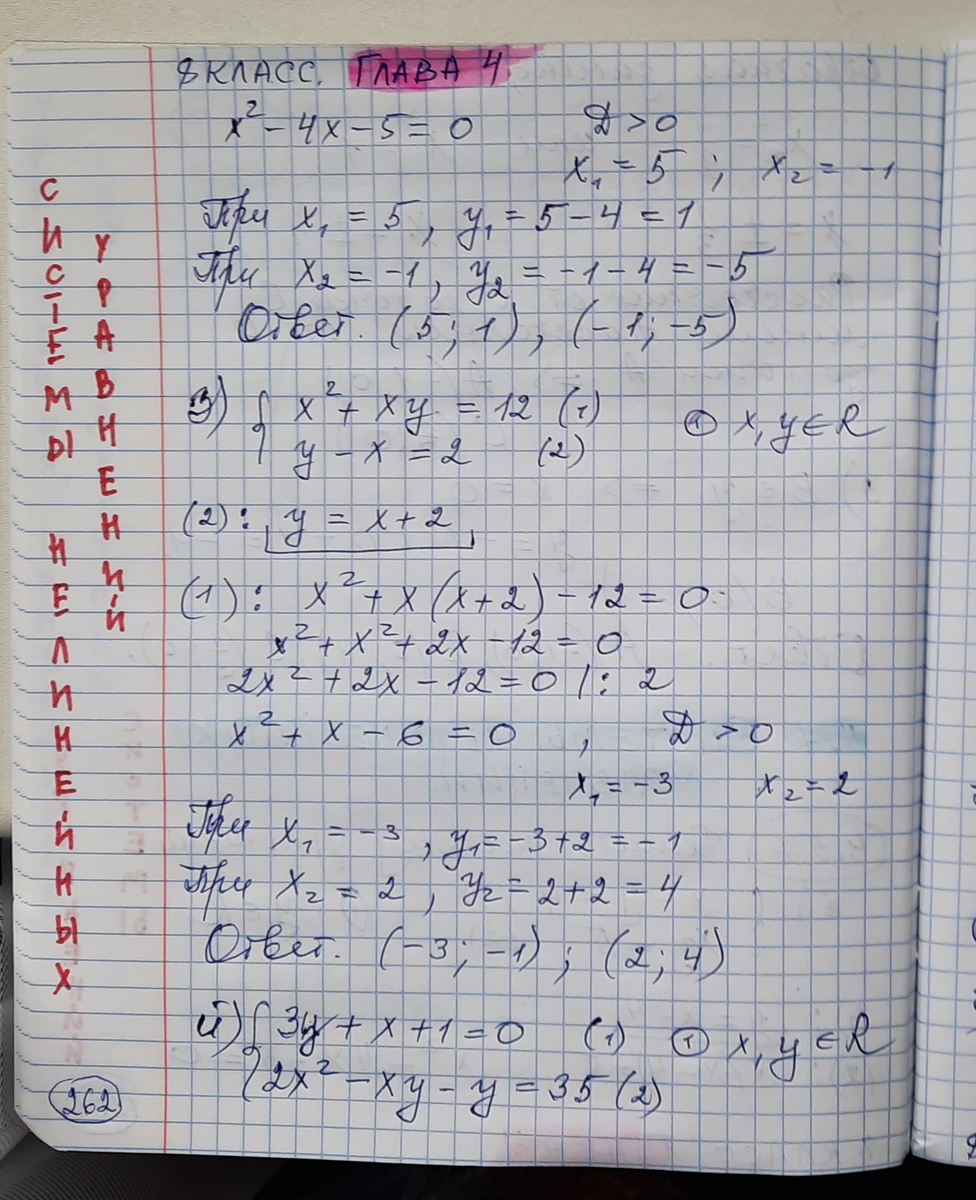 8 КЛАСС. ГЛАВА 4
x² - 4x - 5 = 0 D > 0
x₁ = 5 ; x₂ = -1
При x₁ = 5, y₁ = 5 - 4 = 1
При x₂ = -1, y₂ = -1 - 4 = -5
Ответ. (5; 1), (-1; -5)
З) { x² + xy = 12 (1) ① x, y ∈ R
y - x = 2 (2)
(2): y = x + 2
(1): x² + x(x+2) - 12 = 0
x² + x² + 2x - 12 = 0
2x² + 2x - 12 = 0 | : 2
x² + x - 6 = 0 , D > 0
x₁ = -3 x₂ = 2
При x₁ = -3, y₁ = -3 + 2 = -1
При x₂ = 2, y₂ = 2 + 2 = 4
Ответ. (-3; -1); (2; 4)
й) { 3y + x + 1 = 0 (1) ① x, y ∈ R
2x² - xy - y = 35 (2)
СИСТЕМЫ НЕЛИНЕЙНЫХ
УРАВНЕНИЙ
262